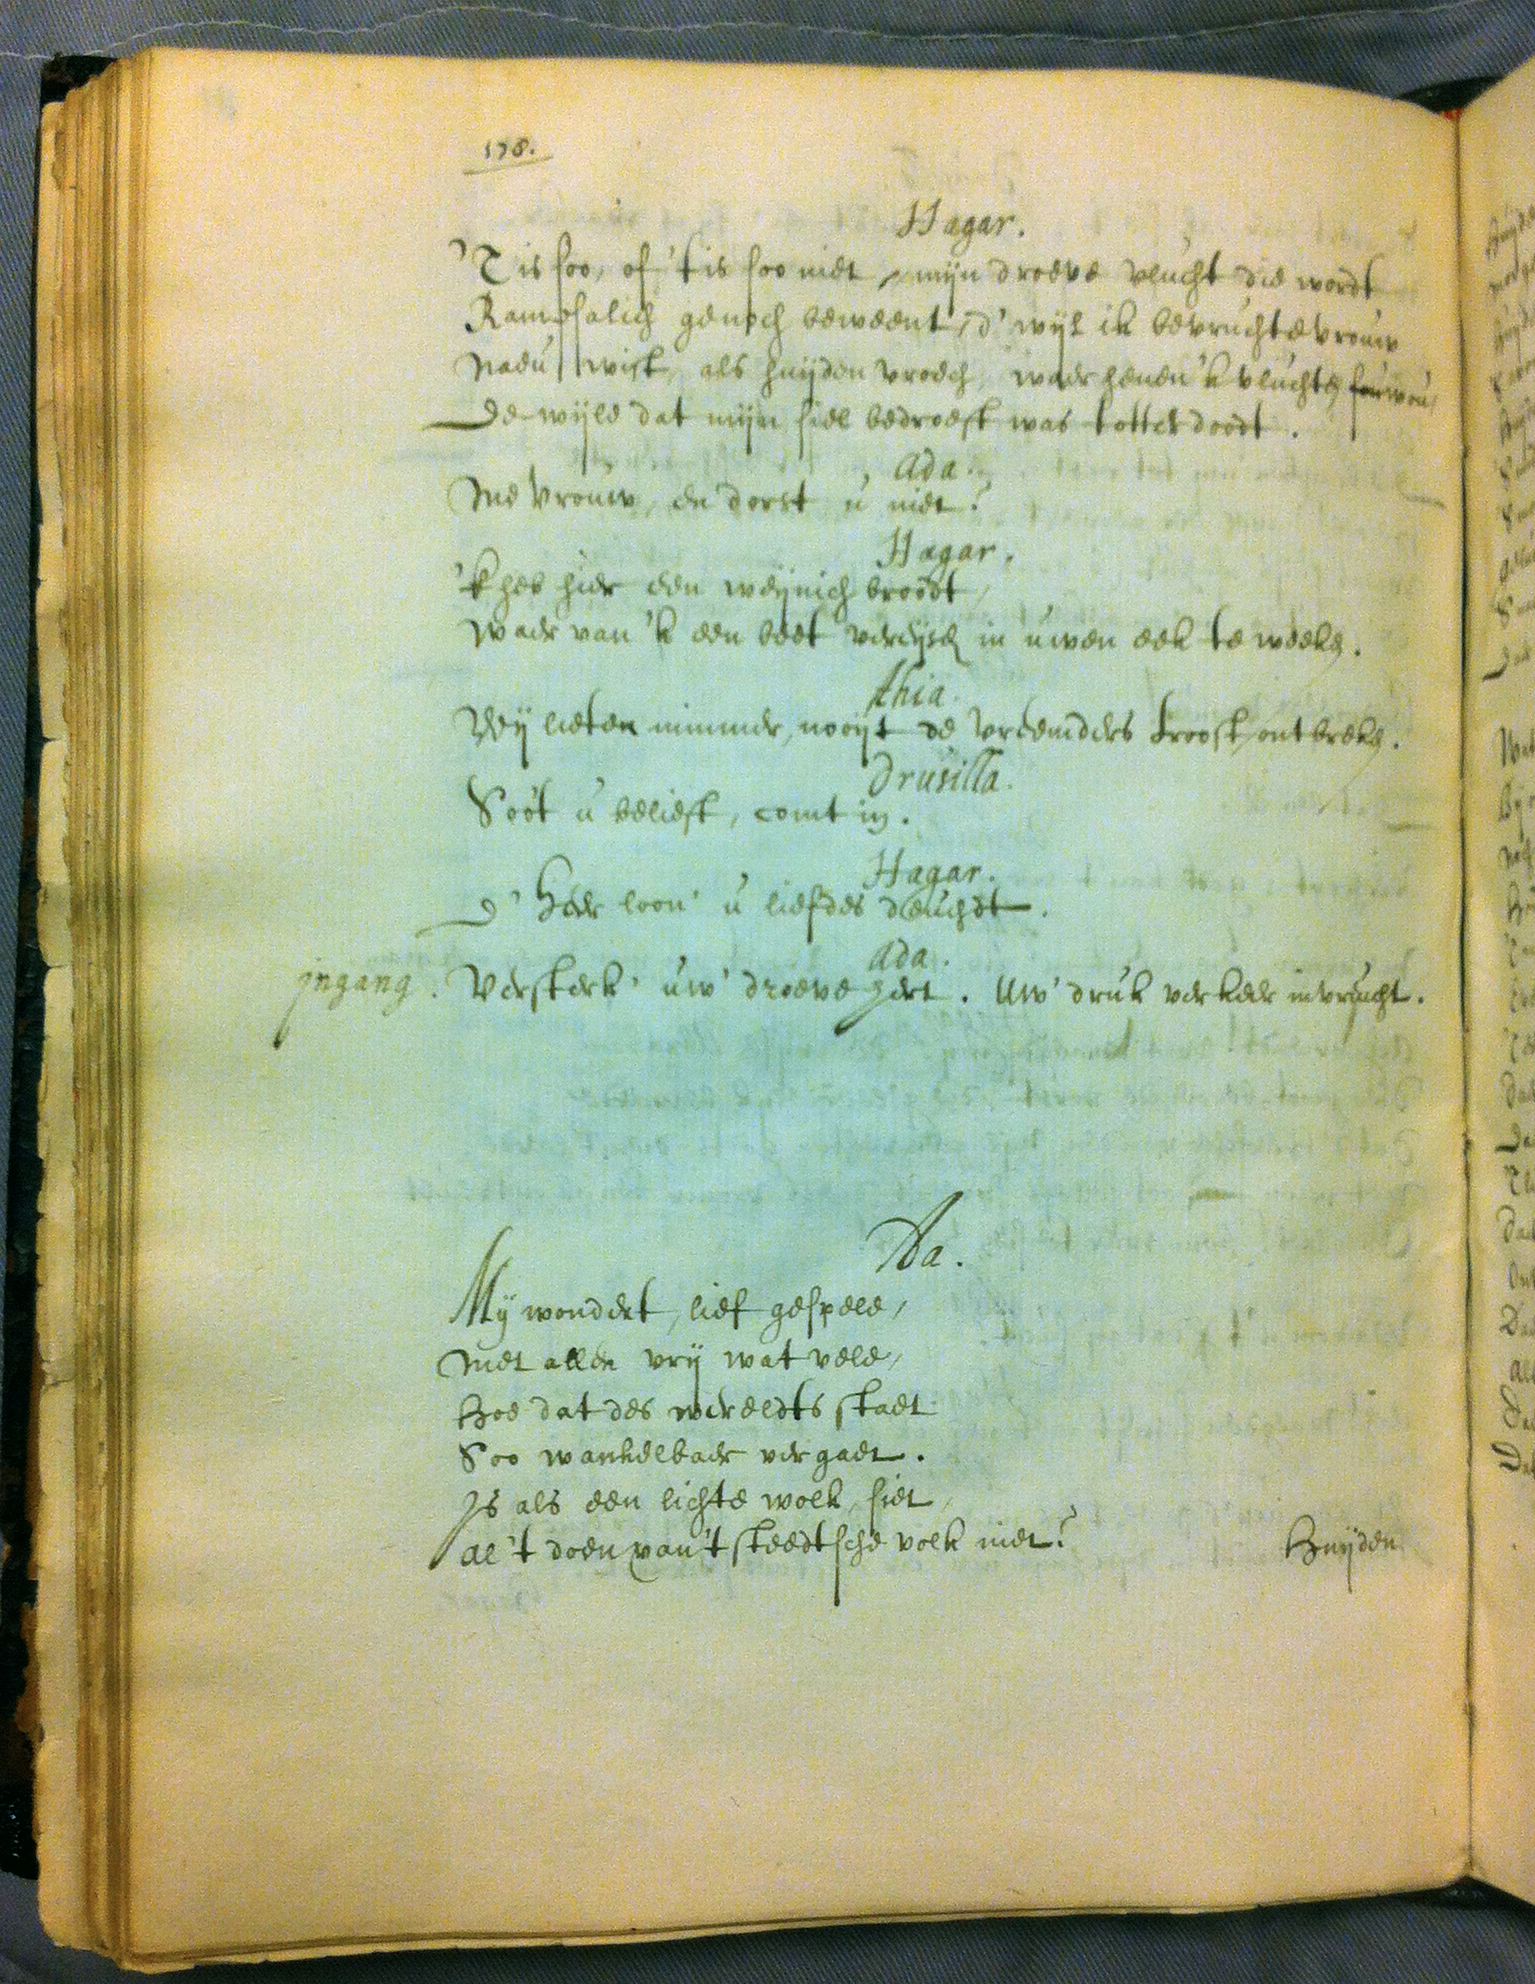 178.
Hagar.
'Tis soo, of 'tis soo niet, mijn droeve vlucht die wordt
Rampsalich genoch beweent, d'wijl ik bevruchte vrouw
Naeu wist, als huijden vroech, waer henen 'k vluchten sou
De wijle dat mijn siel bedroeft was totter doodt.
Ada.
Me Vrouw, en dorst u niet?
Hagar.
'k heb hier een weijnich broodt,
Waer van 'k een beet in uwen eek te weeken.
thia.
Wij lieten nimmer, nooijt de vreemders troost ontbreken.
Drusilla.
Soo't u belieft, comt in.
Hagar.
D'Heer loon' u liefdes deuchdt.
Ada.
jngang. Versterk' uw' droeve hert. Uw' druk verkeer in vreucht.
Aa.
Mij wondert, lief gespele,
Met allen vrij wat vele,
Hoe dat des wereldts staet
Soo wankelbaer vergaet.
Is als een lichte wolk, siet,
Al 't doen van't steedtsche volk niet?
Huijden